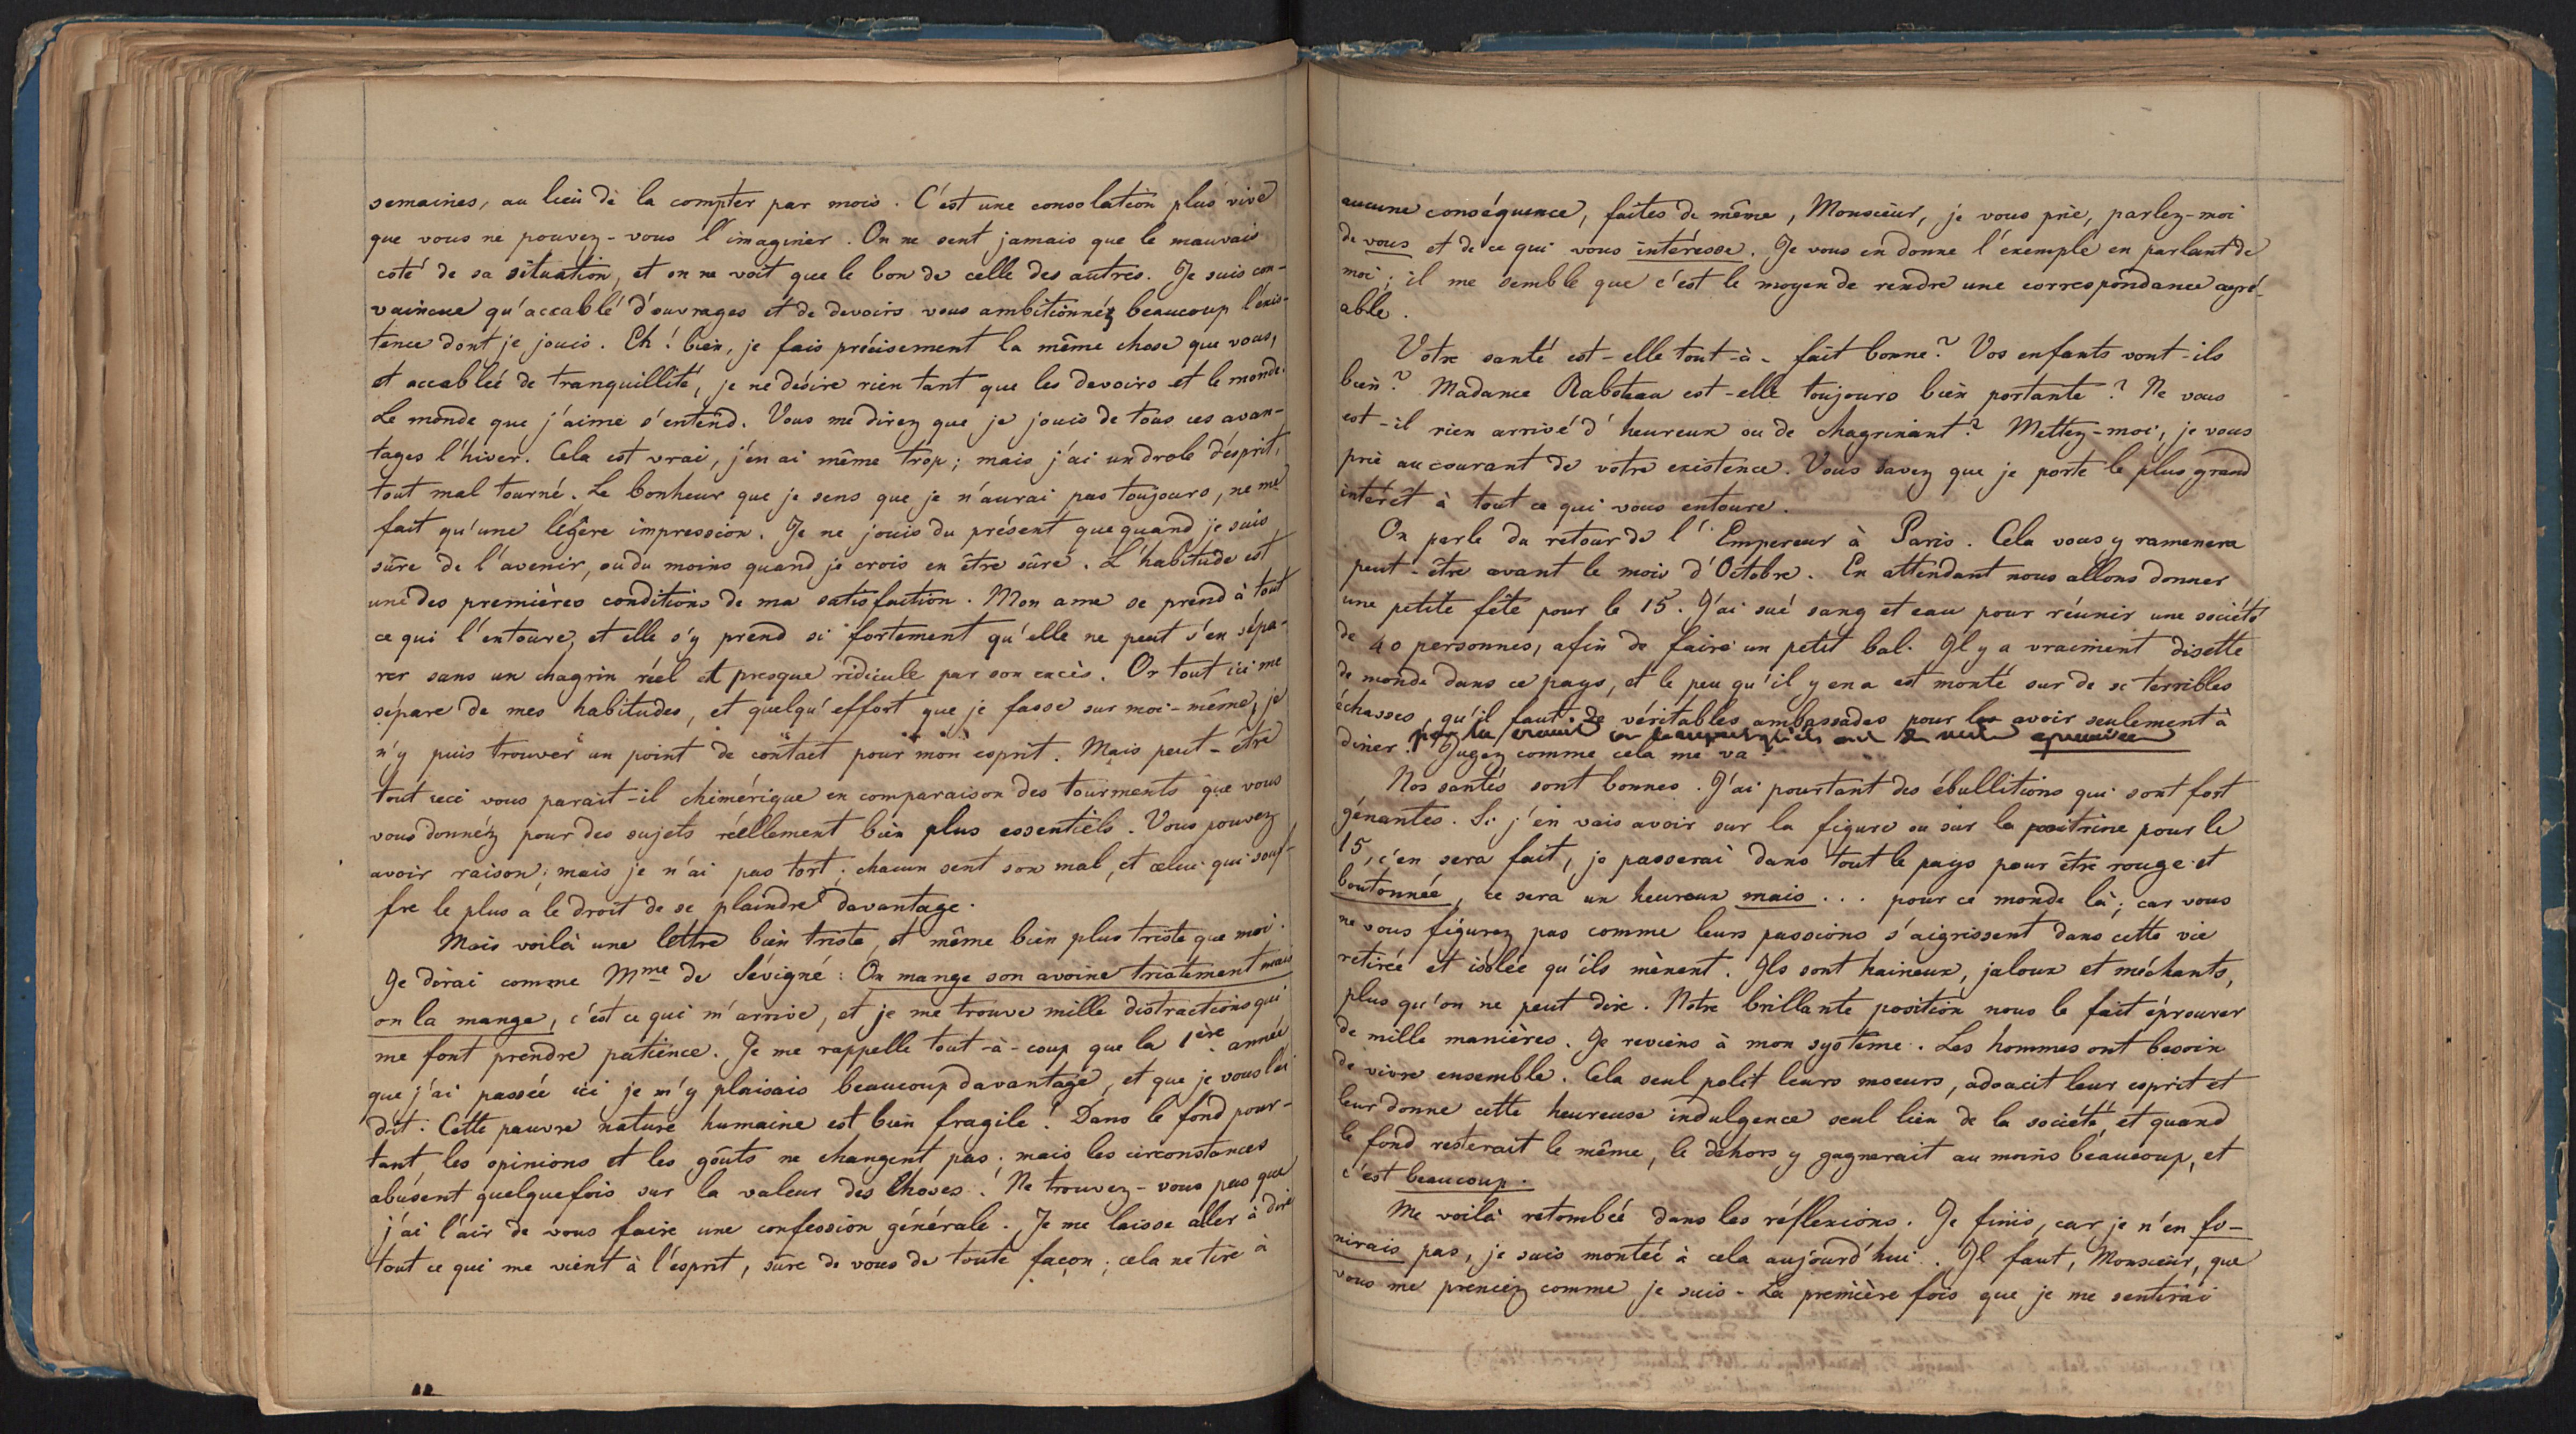 semaines, au lieu de la compter par mois. C'est une consolation plus vive
que vous ne pouvez-vous l'imaginer. On ne sent jamais que le mauvais
coté de sa situation, et on ne voit que le bon de celle des autres. Je suis con-
vaincue qu'accablé d'ouvrages et de devoirs vous ambitionnéz beaucoup l'exis-
tence dont je jouis. Eh! bien, je fais précisement la même chose que vous,
et accablée de tranquillité, je ne désire rien tant que les devoirs et le monde.
Le monde que j'aime s'entend. Vous me direz que je jouis de tous ces avan-
tages l'hiver. Cela est vrai, j'en ai même trop; mais j'ai un drole d'esprit,
tout mal tourné. Le bonheur que je sens que je n'aurai pas toujours, ne me
fait qu'une légère impression. Je ne jouis du présent que quand je suis
sûre de l'avenir, ou du moins quand je crois en être sûre. L'habitude est
une des premières conditions de ma satisfaction. Mon ame se prend à tout
ce qui l'entoure, et elle s'y prend si fortement qu'elle ne peut s'en sépa-
rer sans un chagrin réel et presque ridicule par son excès. Or tout ici me
sépare de mes habitudes, et quelqu'effort que je fasse sur moi-même, je
n'y puis trouver un point de contact pour mon esprit. Mais peut-être
tout ceci vous parait-il chimérique en comparaison des tourments que vous
vous donnéz pour des sujets réellement bien plus essentiels. Vous pouvez
avoir raison; mais je n'ai pas tort; chacun sent son mal, et celui qui souf-
fre le plus a le droit de se plaindre davantage.
Mais voilà une lettre bien triste, et même bien plus triste que moi.
Je dirai comme Mme de Sévigné: On mange son avoine tristement mais
on la mange, c'est ce qui m'arrive, et je me trouve mille distractions qui
me font prendre patience. Je me rappelle tout-à-coup que la 1ère année
que j'ai passée ici je m'y plaisais beaucoup davantage, et que je vous l'ai
dit. Cette pauvre nature humaine est bien fragile! Dans le fond pour-
tant, les opinions et les goûts ne changent pas; mais les circonstances
abusent quelquefois sur la valeur des choses. Ne trouvez-vous pas que
j'ai l'air de vous faire une confession générale. Je me laisse aller à dire
tout ce qui me vient à l'esprit, sûre de vous de toute façon; cela ne tire à
aucune conséquence, faites de même, Monsieur, je vous prie, parlez-moi
de vous et de ce qui vous intéresse. Je vous en donne l'exemple en parlant de
moi; il me semble que c'est le moyen de rendre une correspondance agré-
able.
Votre santé est-elle tout-à-fait bonne? Vos enfants vont-ils
bien? Madame Raboteau est-elle toujours bien portante? Ne vous
est-il rien arrivé d'heureux ou de chagrinant? Mettez-moi, je vous
prie au courant de votre existence. Vous savez que je porte le plus grand
intérêt à tout ce qui vous entoure.
On parle du retour de l'Empereur à Paris. Cela vous y ramenera
peut-être avant le mois d'Octobre. En attendant nous allons donner
une petite fête pour le 15. J'ai sué sang et eau pour réunir une société
de 40 personnes, afin de faire un petit bal. Il y a vraiment disette
de monde dans ce pays, et le peu qu'il y en a est monté sur de si terribles
échasses, qu'il faut de véritables ambassades pour les avoir seulement à
diner. Jugez comme cela me va!
Nos santés sont bonnes. J'ai pourtant des ébullitions qui sont fort
gênantes. Si j'en vais avoir sur la figure ou sur la poitrine pour le
15, c'en sera fait, je passerai dans tout le pays pour être rouge et
boutonnée, ce sera un heureux mais... pour ce monde là; car vous
ne vous figurez pas comme leurs passions s'aigrissent dans cette vie
retirée et isolée qu'ils mènent. Ils sont haineux, jaloux et méchants,
plus qu'on ne peut dire. Notre brillante position nous le fait éprouver
de mille manières. Je reviens à mon système. Les hommes ont besoin
de vivre ensemble. Cela seul polit leurs moeurs, adoucit leur esprit et
leur donne cette heureuse indulgence seul lien de la société, et quand
le fond resterait le même, le dehors y gagnerait au moins beaucoup, et
c'est beaucoup.
Me voilà retombée dans les réflexions. Je finis, car je n'en fi-
nirais pas, je suis montée à cela aujourd'hui. Il faut, Monsieur, que
vous me preniez comme je suis. La première fois que je me sentirai